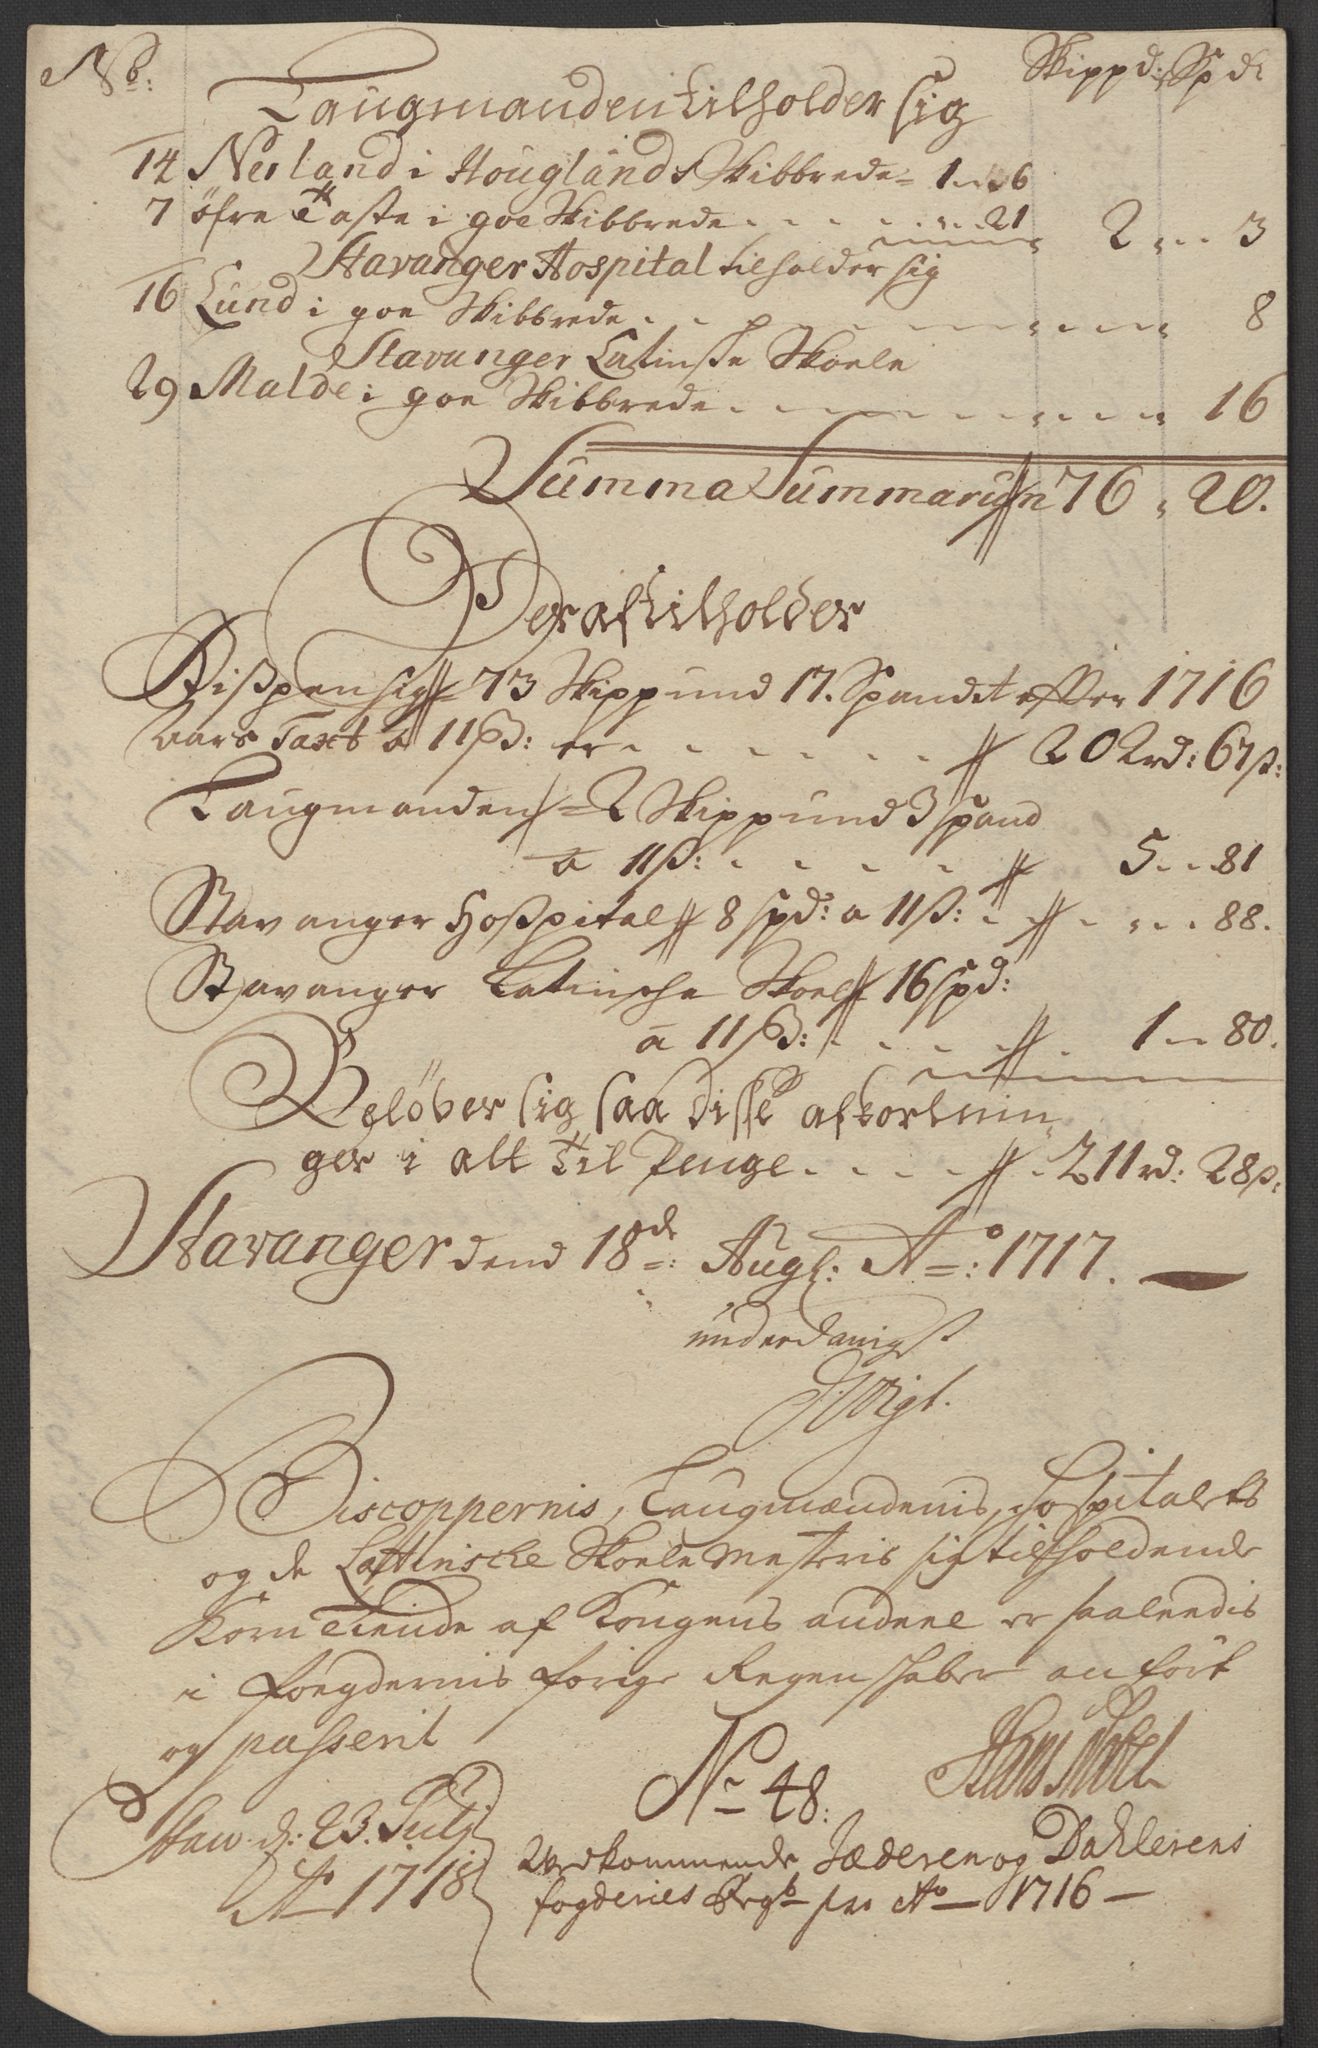 No: Skippd: Spd:
Laugmanden tilholder sig
14 Nerland i Houglands Skibbrede = 1 „ 6
7 öfre Taste i goe Skibbrede . . . . „ 21 2 „ 3
Stavanger Hospital tilholder sig
16 Lund i goe Skibbrede . . . . . 8
Stavanger Latinske Skoele
29 Malde i goe Skibbrede . . . . . 16
Summa Summarum 76 „ 20.
Deraf tilholder
Bispen sig 73 Skippund 17. Spand et efter 1716
aars Taxt a 11 ß: er . . . . . 202 rd: 67 ß:
Laugmanden = 2 Skippund 3 spand
a 11 ß: . . . . . 5 „ 81
Stavanger Hospital 8 spd: a 11 ß: . . . . 88.
Stavanger Latinsche Skoele 16 spd:
a 11 ß: . . . . . 1 „ 80.
Beløber sig saa disse afkortnin
ger i alt til Penge . . . . 211 rd: 28 ß:
Stavanger dend 18de: Augt: Ao: 1717.
underdanigst
Biscoppernis, Laugmændenis, Hospitalets
og de Lattinische Skoele Mesteris sig tilholdende
Korn Tiende af Kongens andeel er saaledis
i foegdernis forige Regenskaber anført
og passerit
Hans Nobel
Staw. d: 23. Julj
Ao 1718
No 48:
Vedkommende Jæderen og Dahlerens
fogderies Regsb pro Ao 1716